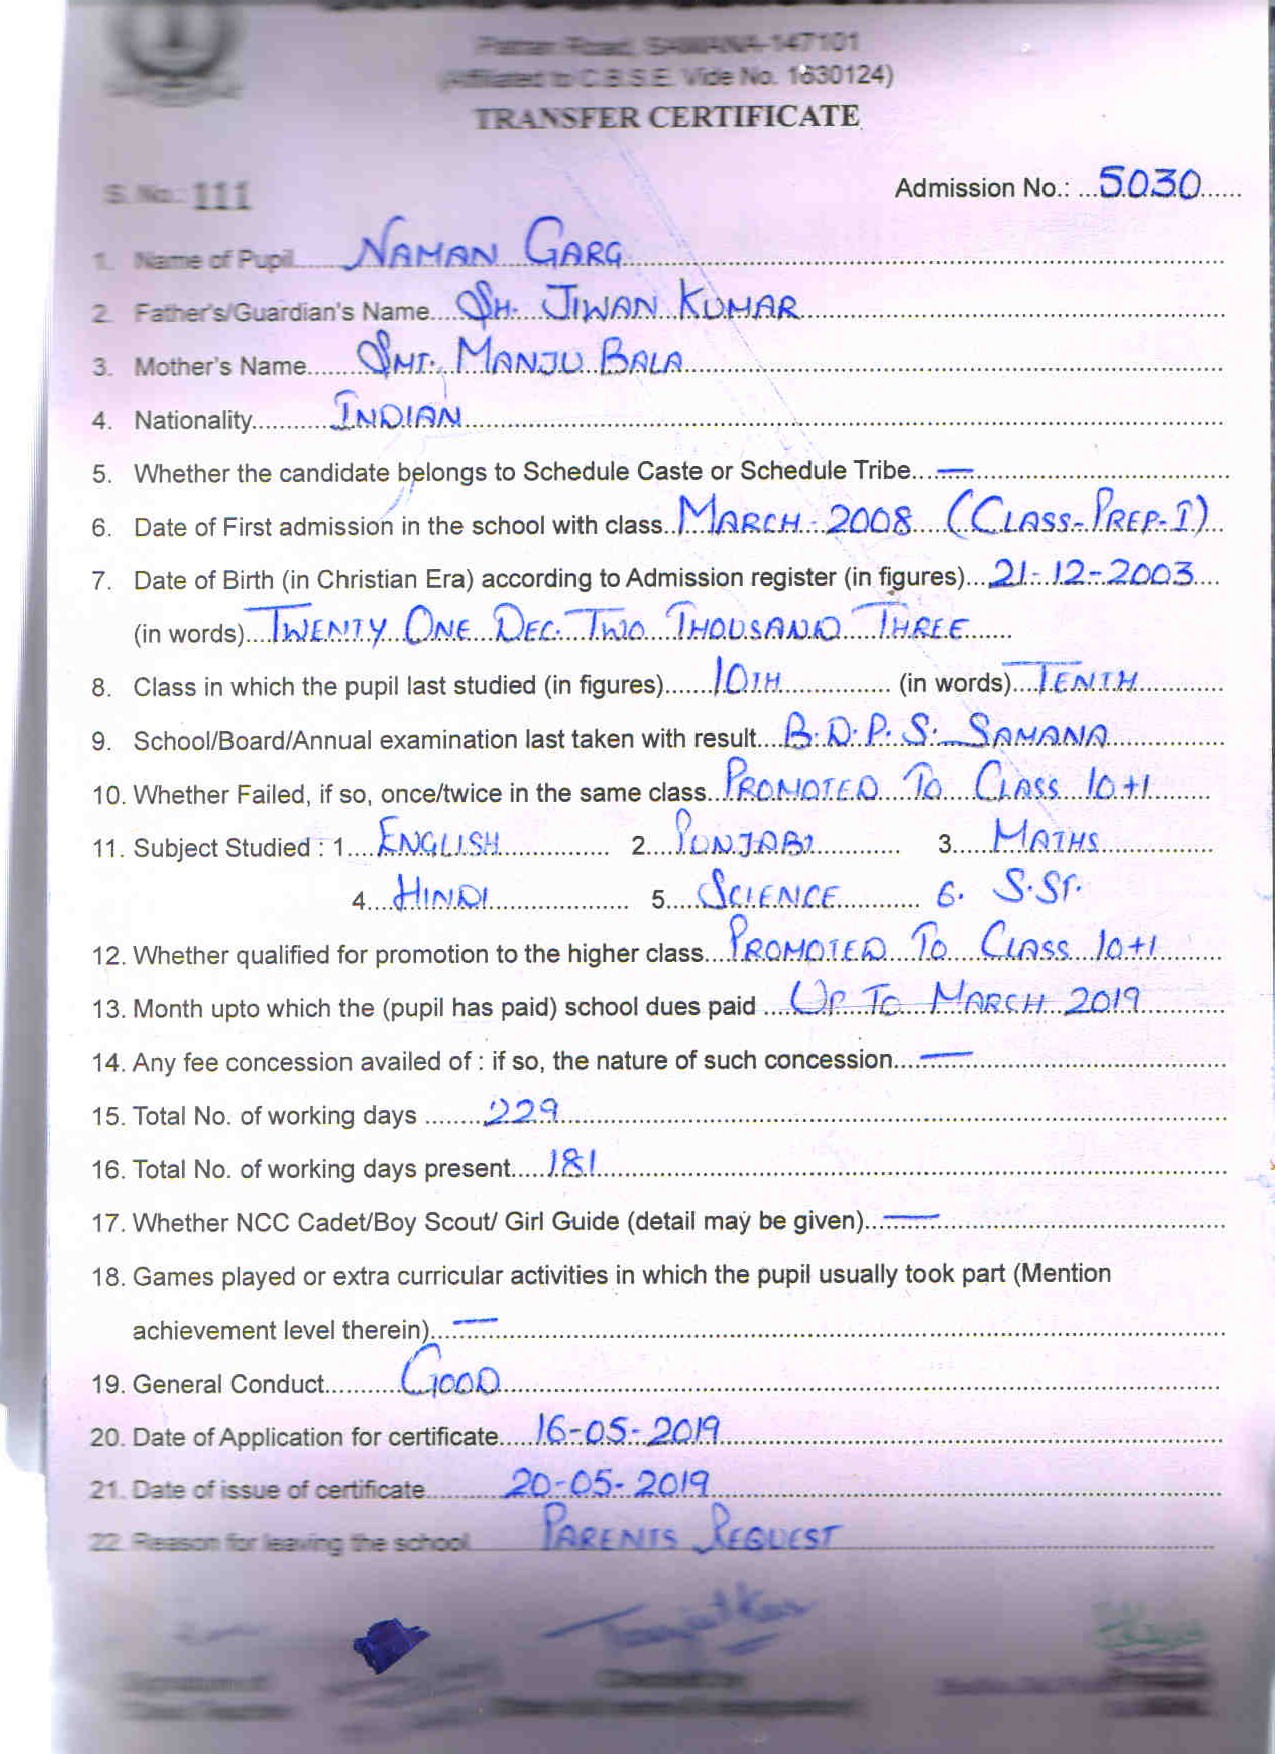 Road, SAMANA-147101
(Affiliated to C.B.S.E. Vide No. 1630124)
TRANSFER CERTIFICATE
S. No.: 111 Admission No.: ...5030......
1. Name of Pupil......NAMAN GARG......
2. Father's/Guardian's Name....SH. JIWAN KUMAR......
3. Mother's Name.......SMT. MANJU BALA......
4. Nationality...........INDIAN......
5. Whether the candidate belongs to Schedule Caste or Schedule Tribe...—......
6. Date of First admission in the school with class..MARCH - 2008 (CLASS-PREP-I)...
7. Date of Birth (in Christian Era) according to Admission register (in figures)...21-12-2003...
(in words)....TWENTY ONE DEC. TWO THOUSAND THREE......
8. Class in which the pupil last studied (in figures).......10TH............... (in words)....TENTH......
9. School/Board/Annual examination last taken with result....B.D.P.S. SAMANA......
10. Whether Failed, if so, once/twice in the same class...PROMOTED TO CLASS 10+1......
11. Subject Studied : 1....ENGLISH............... 2....PUNJABI............ 3.....MATHS...............
4....HINDI.................. 5.....SCIENCE............ 6. S.ST.
12. Whether qualified for promotion to the higher class....PROMOTED TO CLASS 10+1......
13. Month upto which the (pupil has paid) school dues paid ....UP TO MARCH 2019......
14. Any fee concession availed of : if so, the nature of such concession....—......
15. Total No. of working days ........229......
16. Total No. of working days present.....181......
17. Whether NCC Cadet/Boy Scout/ Girl Guide (detail may be given)...—......
18. Games played or extra curricular activities in which the pupil usually took part (Mention
achievement level therein)....—......
19. General Conduct..........GOOD......
20. Date of Application for certificate.....16-05-2019......
21. Date of issue of certificate..........20-05-2019......
22. Reason for leaving the school PARENTS REQUEST......